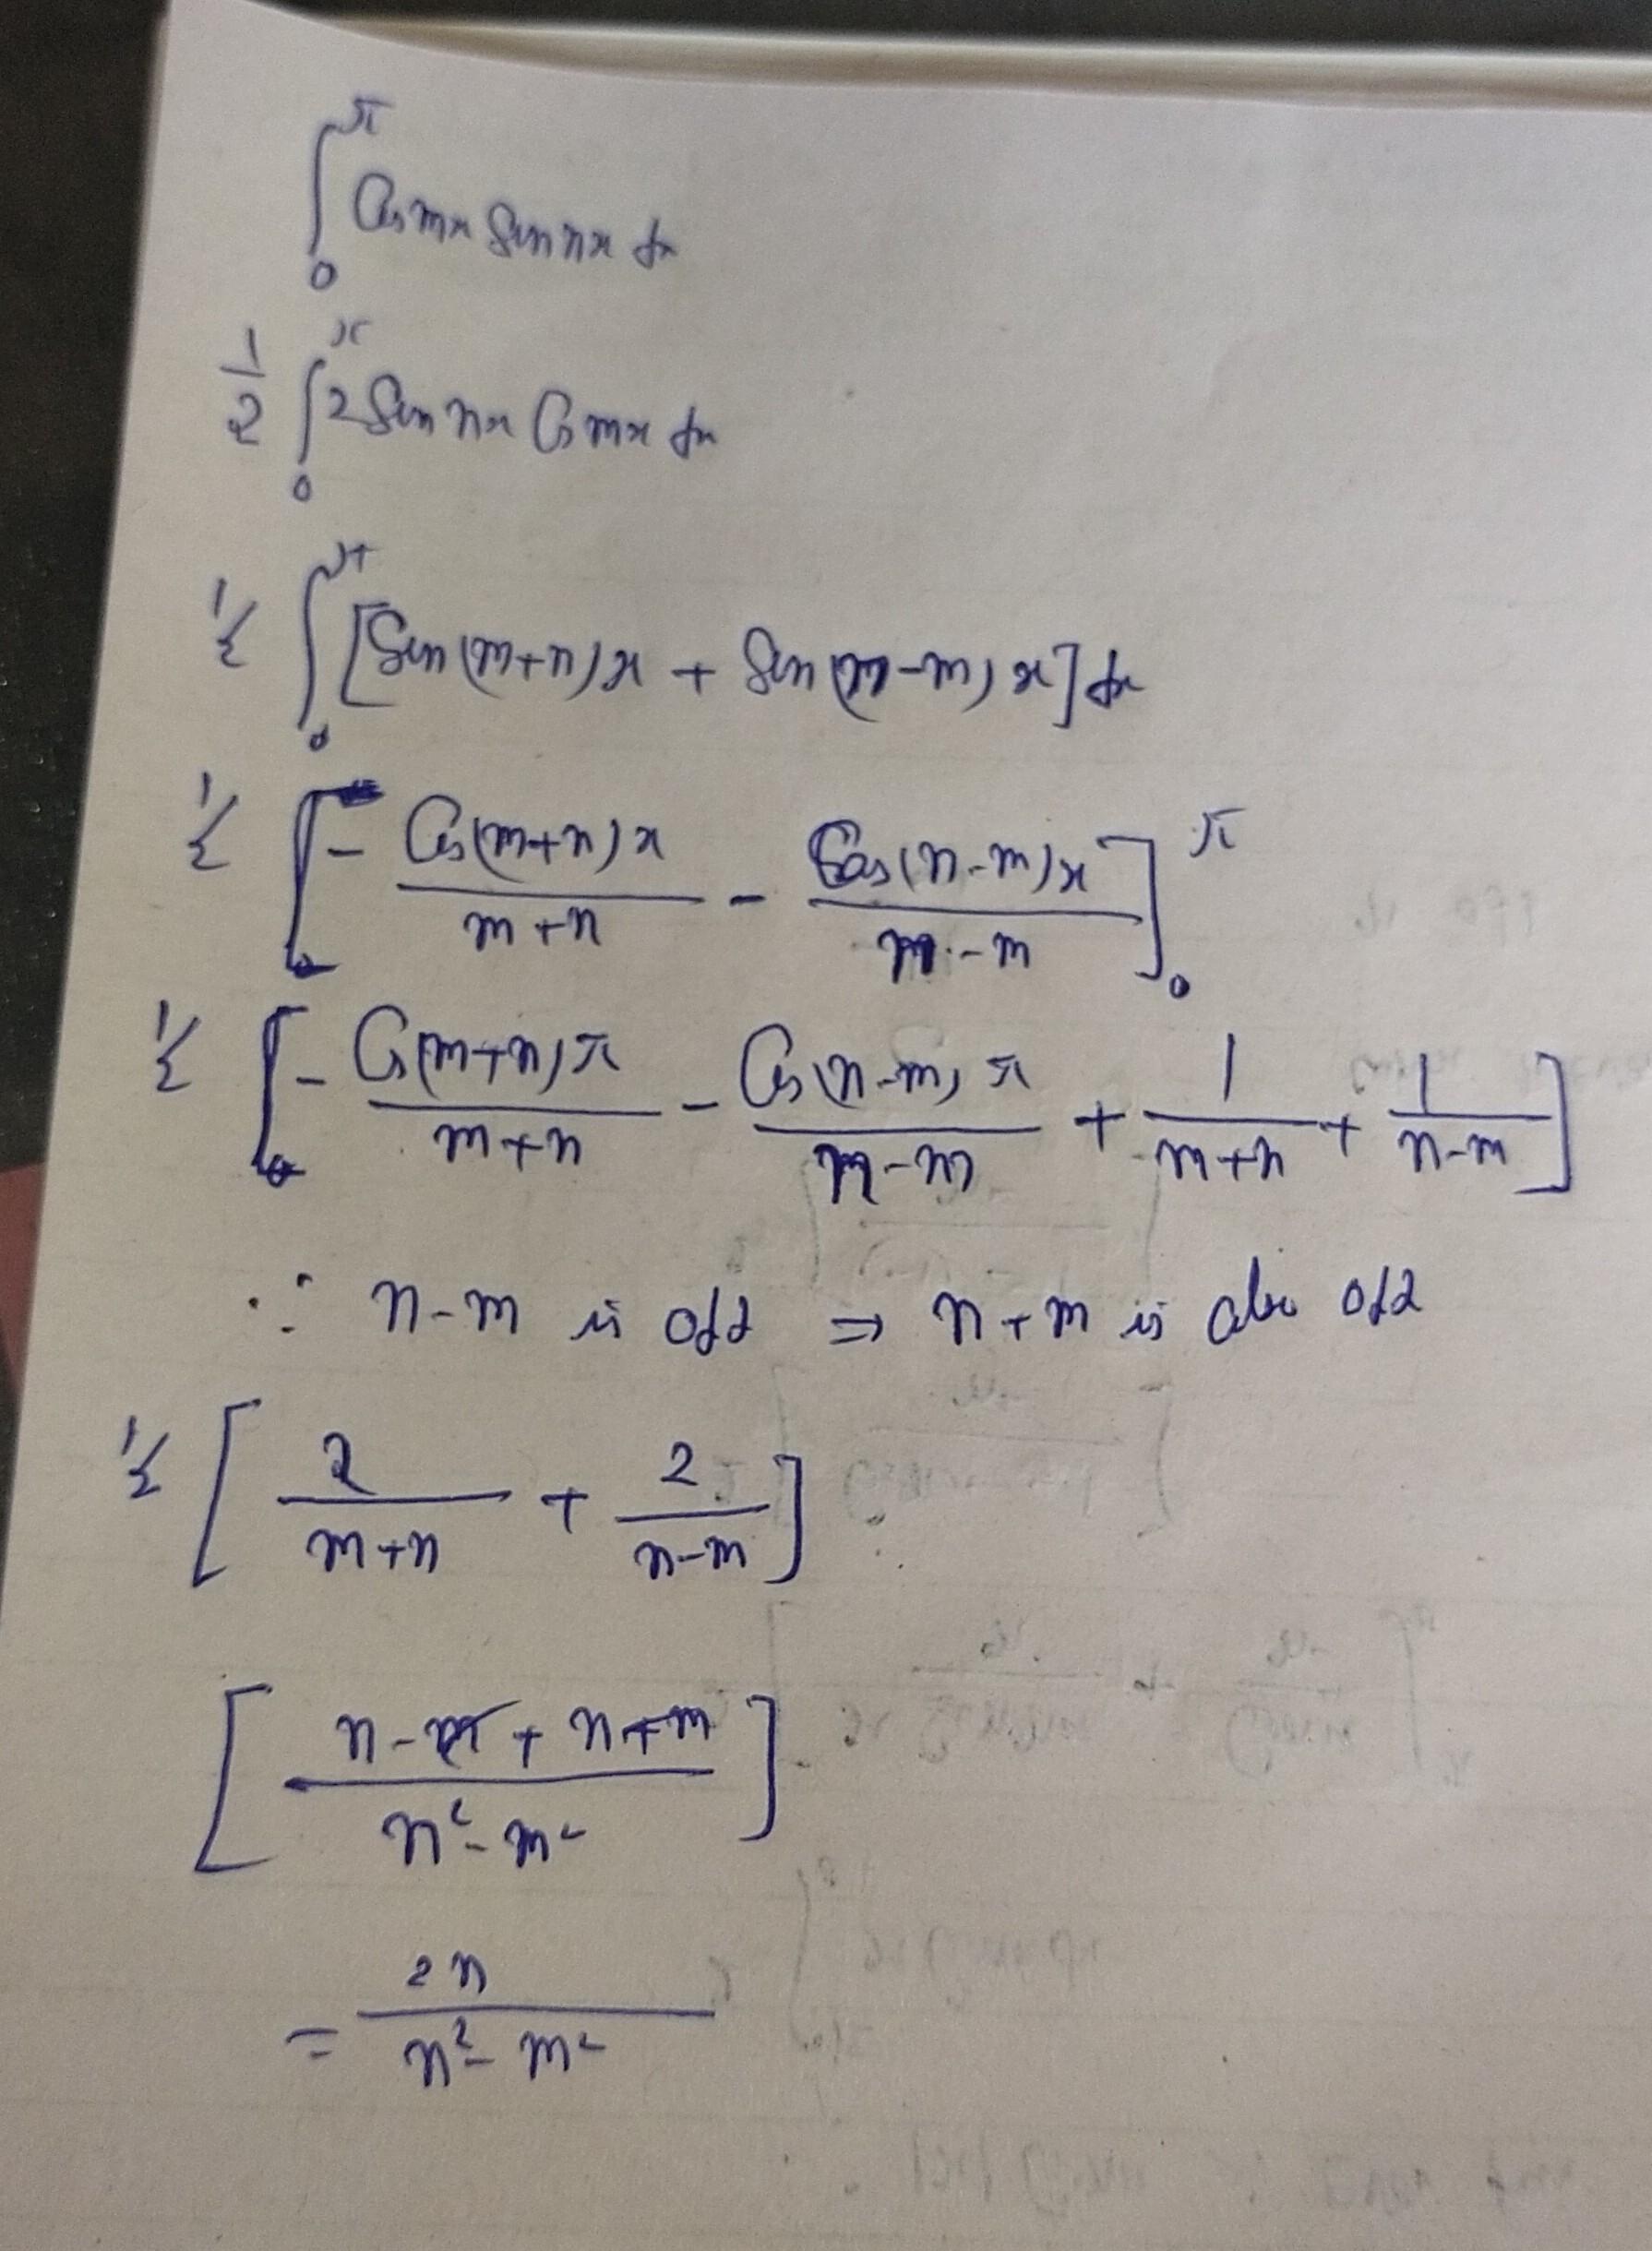 ∫₀^π Cos mx Sin nx dx
1/2 ∫₀^π 2 Sin nx Cos mx dx
1/2 ∫₀^π [Sin (m+n) x + Sin (n-m) x] dx
1/2 [- Cos (m+n) x / m+n - Cos (n-m) x / n-m]₀^π
1/2 [- Cos (m+n) π / m+n - Cos (n-m) π / n-m + 1 / m+n + 1 / n-m]
∵ n-m is odd ⇒ n+m is also odd
1/2 [2 / m+n + 2 / n-m]
[n-m + n+m / n²-m²]
= 2n / n²-m²